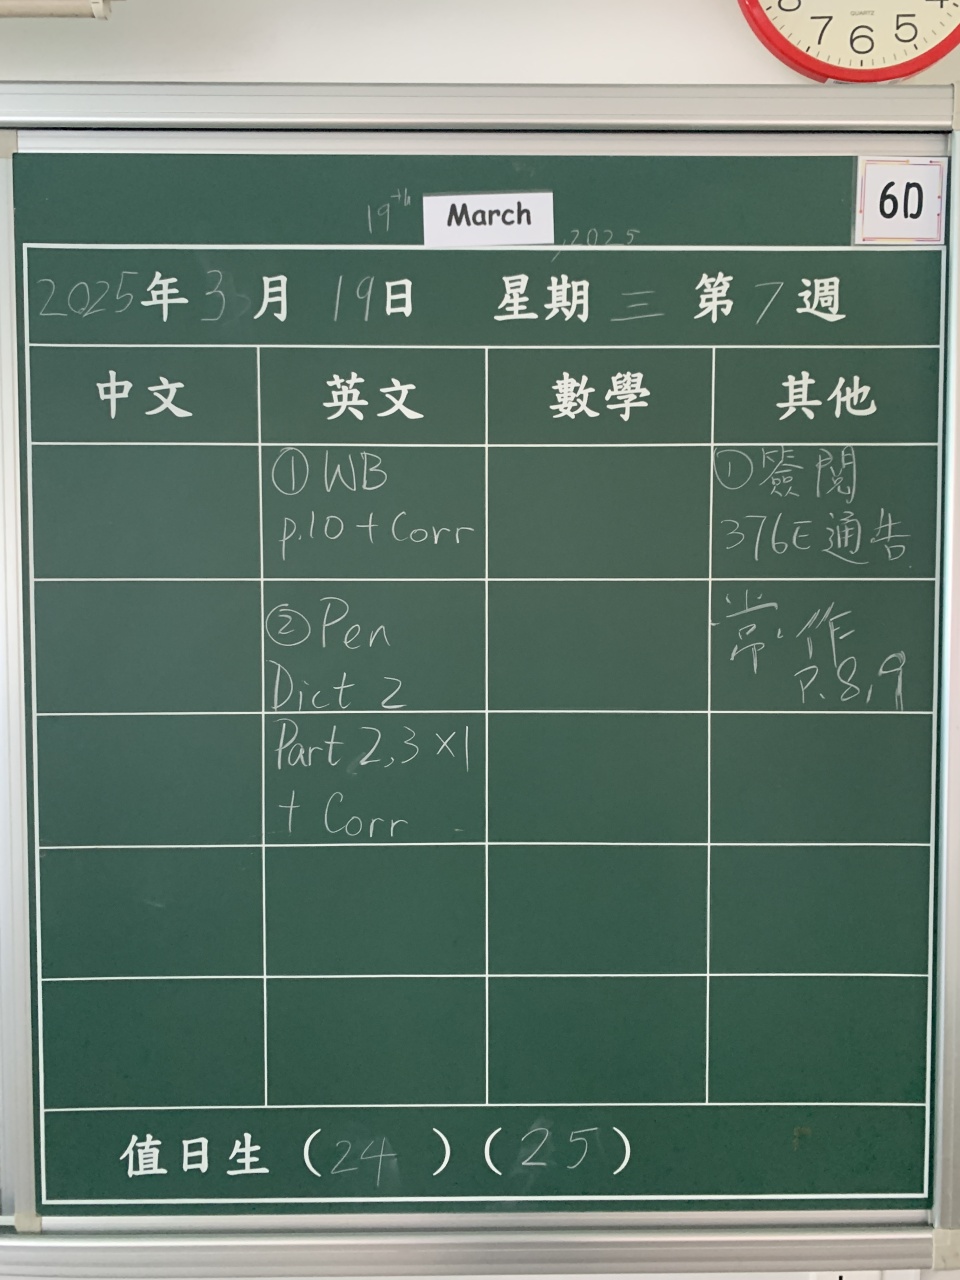 7 6 5
QUARTZ
19th March, 2025
6D
2025年3月19日 星期三 第7週
中文 英文 數學 其他
① WB
p.10 + Corr
① 簽閱
376E通告
② Pen
Dict 2
常 作
P.8,9
Part 2,3 ×1
+ Corr
值日生 (24) (25)